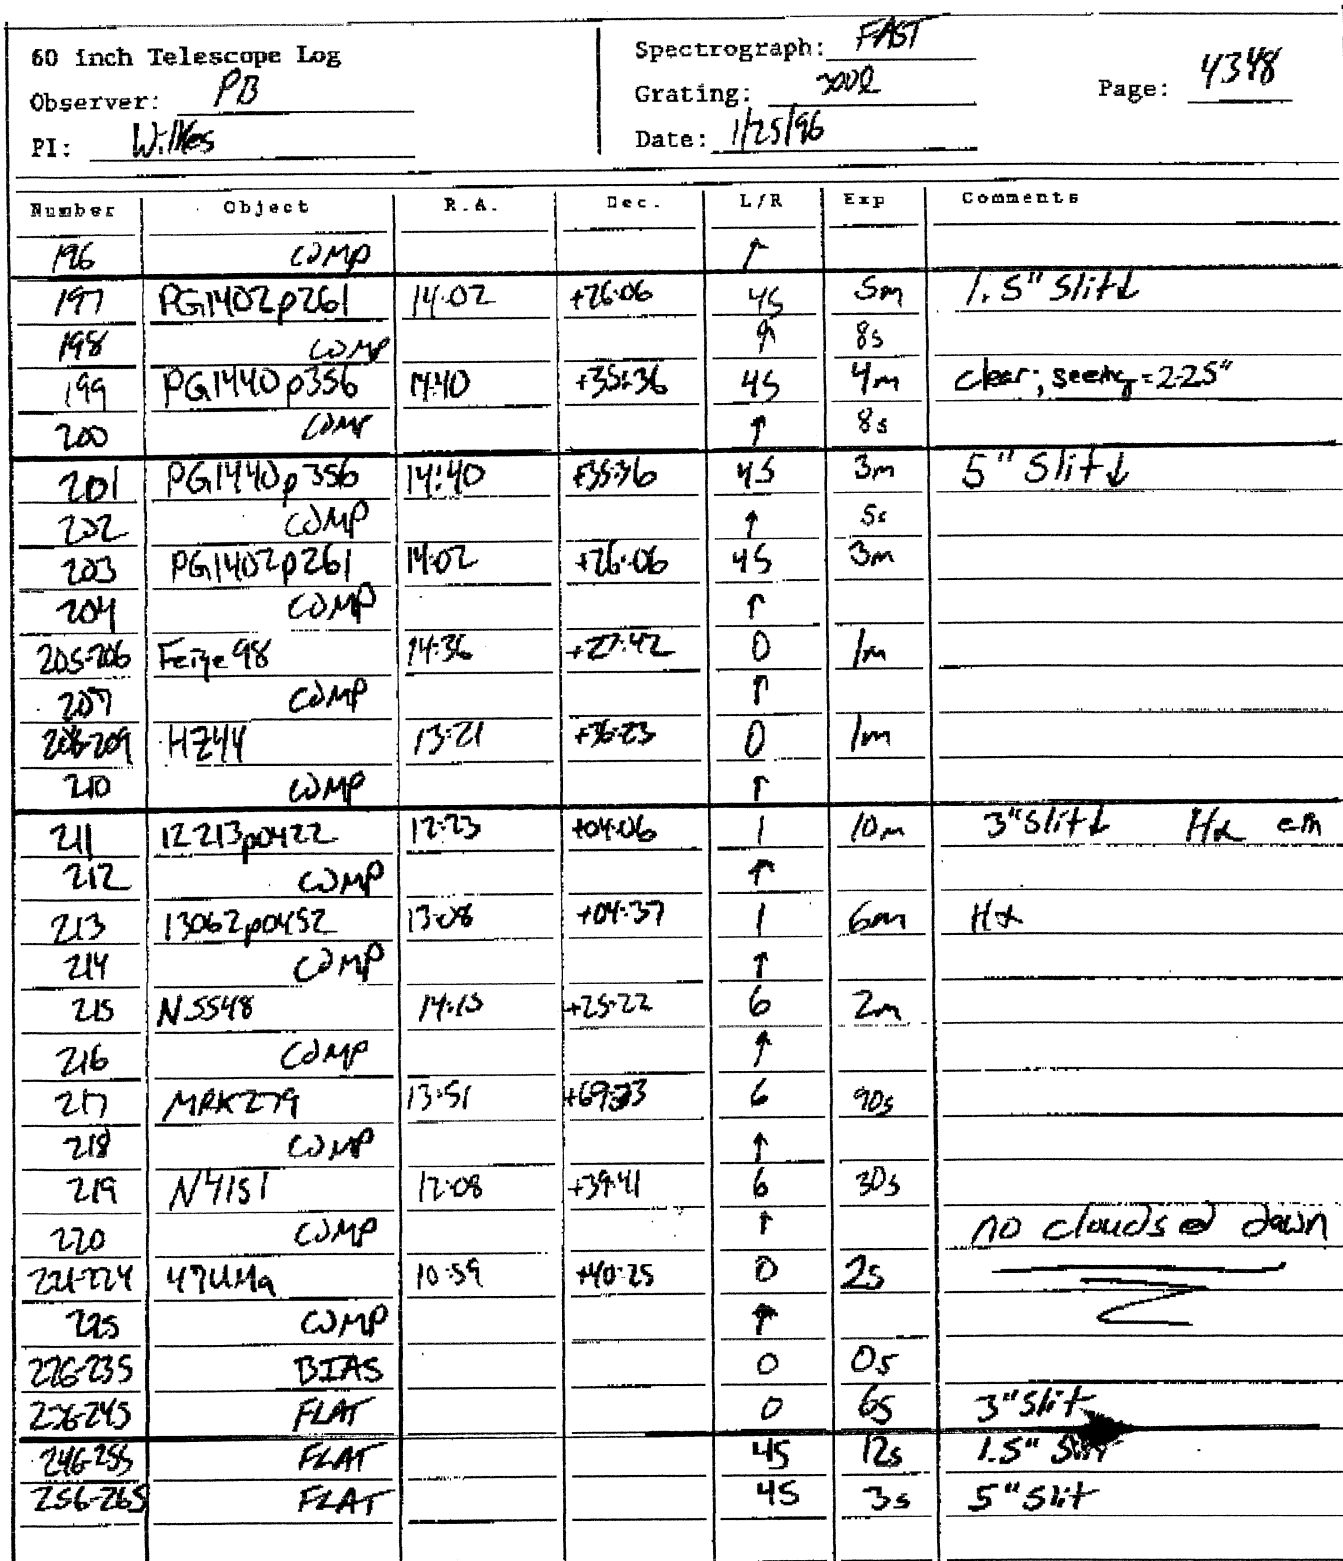 60 inch Telescope Log
Observer: PB
PI: Wilkes
Spectrograph: FAST
Grating: 300l
Date: 1/25/96
Page: 4348
Number Object R.A. Dec. L/R Exp Comments
196 COMP ↑
197 PG1402p261 14:02 +26:06 45 5m 1.5" Slit↓
198 COMP ↑ 8s
199 PG1440p356 14:40 +35:36 45 4m clear; seeing=2-2.5"
200 COMP ↑ 8s
201 PG1440p356 14:40 +35:36 45 3m 5" Slit↓
202 COMP ↑ 5s
203 PG1402p261 14:02 +26:06 45 3m
204 COMP ↑
205-206 Feige98 14:36 +27:42 0 1m
207 COMP ↑
208-209 HZ44 13:21 +36:23 0 1m
210 COMP ↑
211 12213p0422 12:23 +04:06 1 10m 3" Slit↓ Hα em
212 COMP ↑
213 13062p0452 13:08 +04:37 1 6m Hα
214 COMP ↑
215 N5548 14:15 +25:22 6 2m
216 COMP ↑
217 MRK279 13:51 6 90s
218 COMP ↑
219 N4151 12:08 +39:41 6 30s
220 COMP ↑ no clouds @ dawn
221-224 47UMa 10:59 +40:25 0 2s
225 COMP ↑
226-235 BIAS 0 0s
236-245 FLAT 0 6s 3" Slit
246-255 FLAT 45 12s 1.5" Slit
256-265 FLAT 45 3s 5" Slit